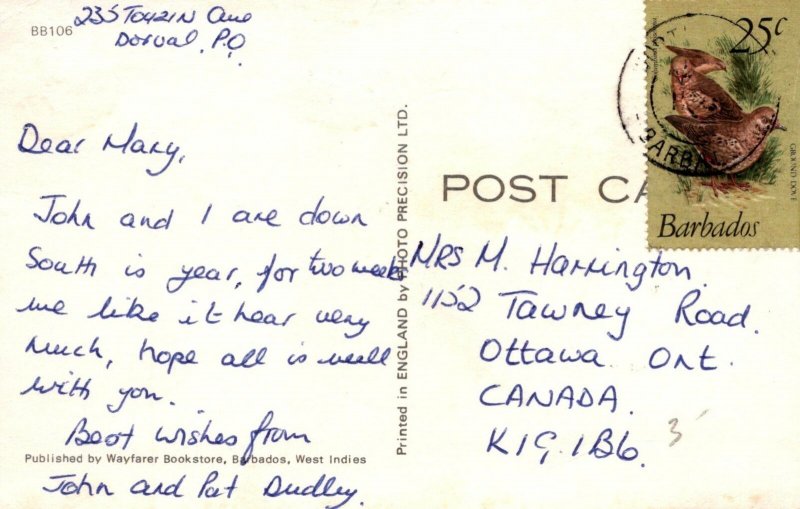 BB106
235 Touzin Ave
Dorval, P.Q.
Dear Mary,
John and I are down
South is year, for two weeks
we like it hear very
much, hope all is well
with you.
Best wishes from
Published by Wayfarer Bookstore, Barbados, West Indies
John and Pat Dudley.
Printed in ENGLAND by PHOTO PRECISION LTD.
25c
GROUND DOVE
Barbados
BARB
POST CA
MRS M. Harrington
1152 Tawney Road.
Ottawa Ont.
CANADA.
K1G.1B6.
3